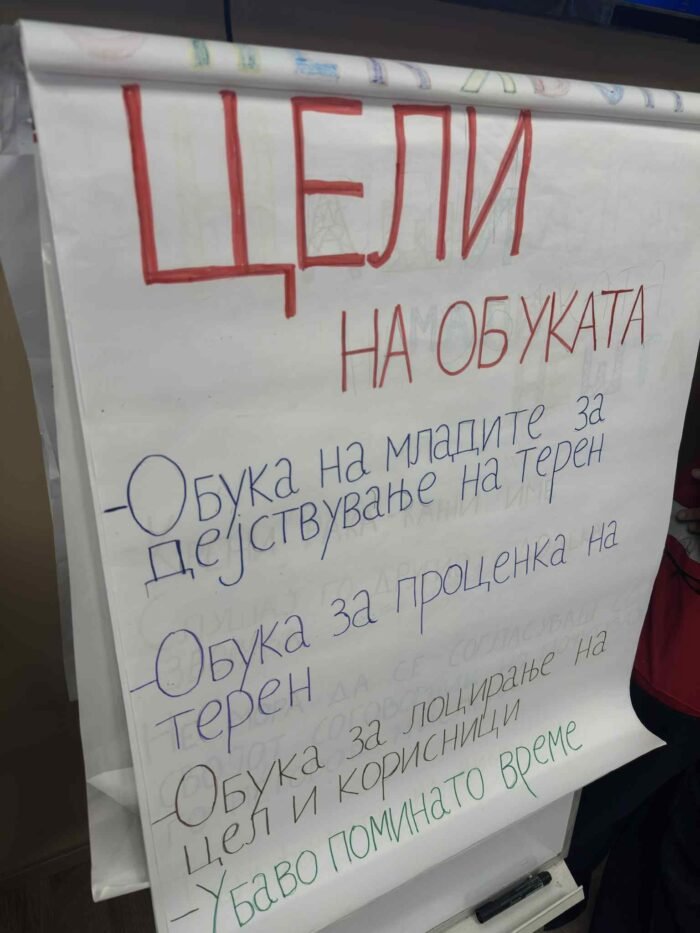 ЦЕЛИ
НА ОБУКАТА
-Обука на младите за
дејствување на терен
-Обука за проценка на
терен
-Обука за лоцирање на
цел и корисници
-Убаво поминато време